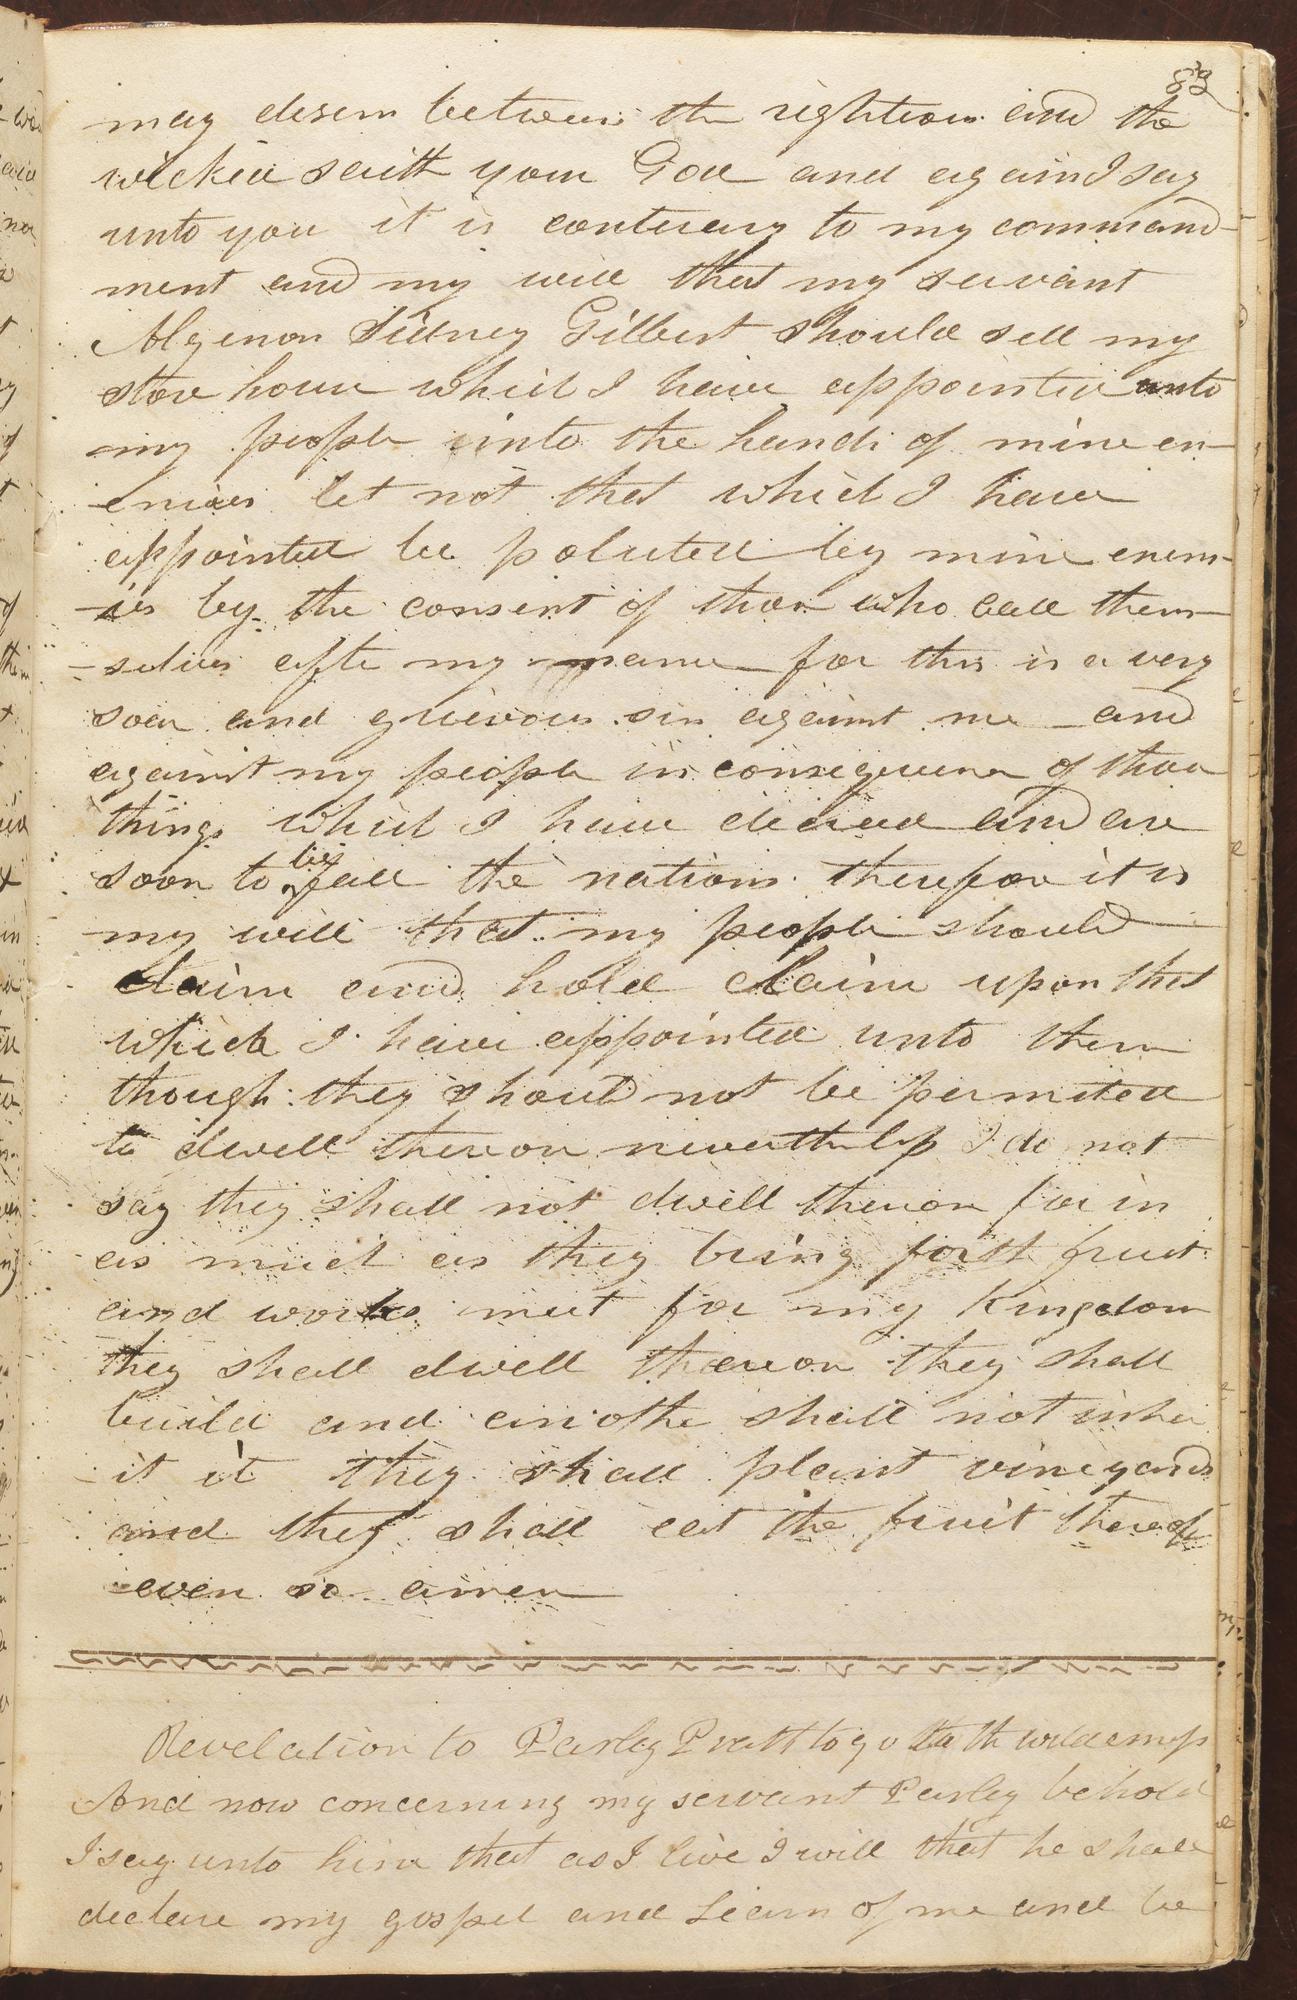 83
may desern between the rightious and the
wicked saith your God and again I say
unto you it is contrary to my command-
ment and my will that my servant
Algenon Sidney Gilbert should sell my
store house which I have appointed unto
my people into the hands of mine en-
emies let not that which I have
appointed be poluted by mine enem-
-ies by the consent of those who call them-
-selves afte my name for this is a very
soar and grievous sin against me and
against my people in consequence of those
things which I have decreed and are
soon to befall the nations therefore it is
my will that my people should
claim and hold claim upon that
which I have appointed unto them
though they should not be permited
to dwell thereon neverthless I do not
say they shall not dwell thereon for in
as much as they bring forth fruit
and works meet for my Kingdom
they shall dwell thereon they shall
build and anothe shall not inher
-it it they shall plant vineyards
and they shall eat the fruit thereof
even so amen
Revelation to Parley Pratt to go to th wilderness
And now concerning my servant Parley behold
I say unto him that as I live I will that he shall
declare my gospel and Learn of me and be